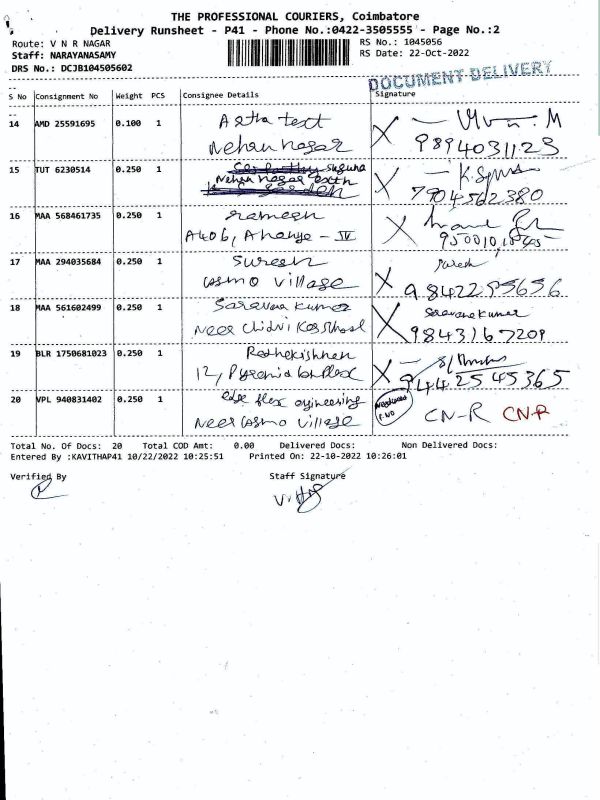 THE PROFESSIONAL COURIERS, Coimbatore
Delivery Runsheet - P41 - Phone No.:0422-3505555 - Page No.:2
Route: V N R NAGAR
RS No.: 1045056
Staff: NARAYANASAMY
RS Date: 22-Oct-2022
DRS No.: DCJB104505602
DOCUMENT DELIVERY
S No Consignment No Weight PCS Consignee Details Signature
14 AMD 25591695 0.100 1 Astra text
Nehru nagar 9894031123
15 TUT 6230514 0.250 1 suguna
Nehru nagar
7904562380
16 MAA 568461735 0.250 1 ramesh
A406, - IV
17 MAA 294035684 0.250 1 Suresh Suresh
Cosmo village
18 MAA 561602499 0.250 1 Saravana Kumar Saravana Kumar
Near School 9843167209
19 BLR 1750681023 0.250 1 Radhakishnan
12, Pyramid 9442545365
20 VPL 940831402 0.250 1 edge flex engineering
Near Cosmo village CN-R CN-R
Total No. Of Docs: 20 Total COD Amt: 0.00 Delivered Docs: Non Delivered Docs:
Entered By :KAVITHAP41 10/22/2022 10:25:51 Printed On: 22-10-2022 10:26:01
Verified By Staff Signature